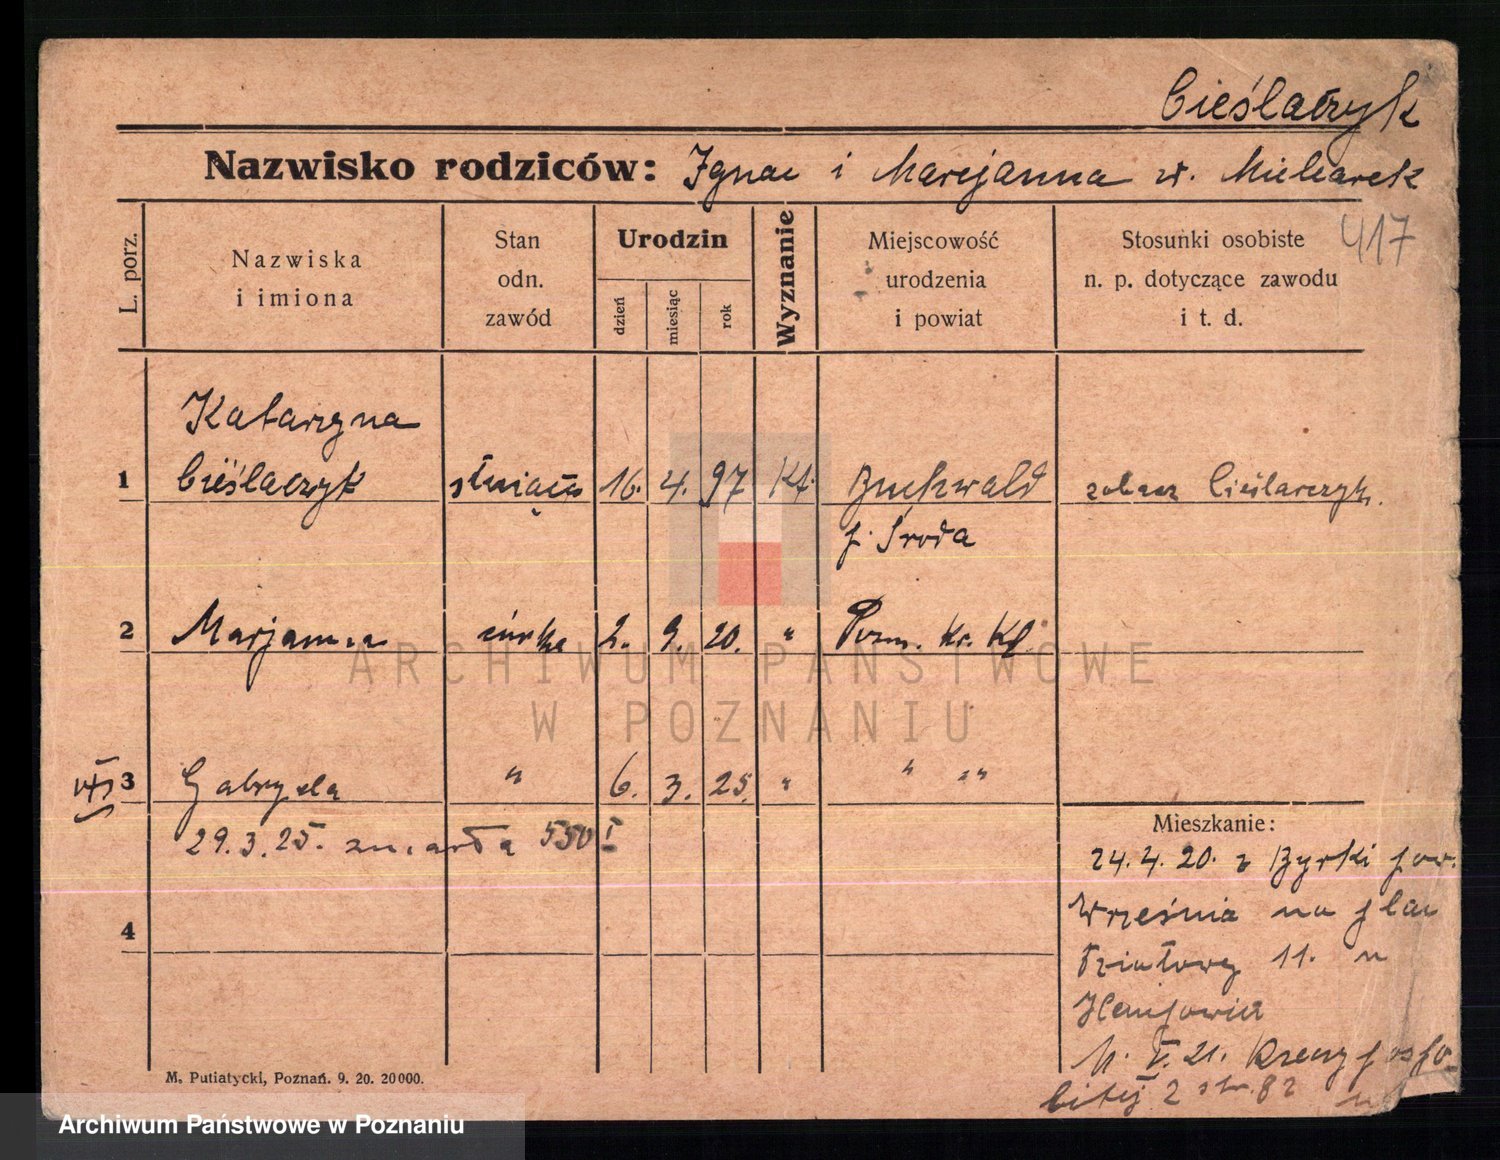 Cieślaczyk
Nazwisko rodziców: Ignac i Marejanna z.
417
L. porz.
Nazwiska
i imiona
Stan
odn.
zawód
Urodzin
dzień
miesiąc
rok
Wyznanie
Miejscowość
urodzenia
i powiat
Stosunki osobiste
n. p. dotyczące zawodu
i t. d.
Katarzyna
1 Cieślaczyk służąca 16. 4. 97 Kt. Buchwald zobacz Cieślarczyk.
p. Środa
2 Marjanna córka 2. 9. 20. " Pozn. Kr. Kl.
3 Gabryela " 6. 3. 25. " " " "
29.3.25. zmarła 550 I
4
Mieszkanie:
24.4.20. z pow.
Września na plac
Działowy 11. u
21.
2 str. 82
M. Putiatycki, Poznań. 9. 20. 20000.
ARCHIWUM PAŃSTWOWE
W POZNANIU
Archiwum Państwowe w Poznaniu